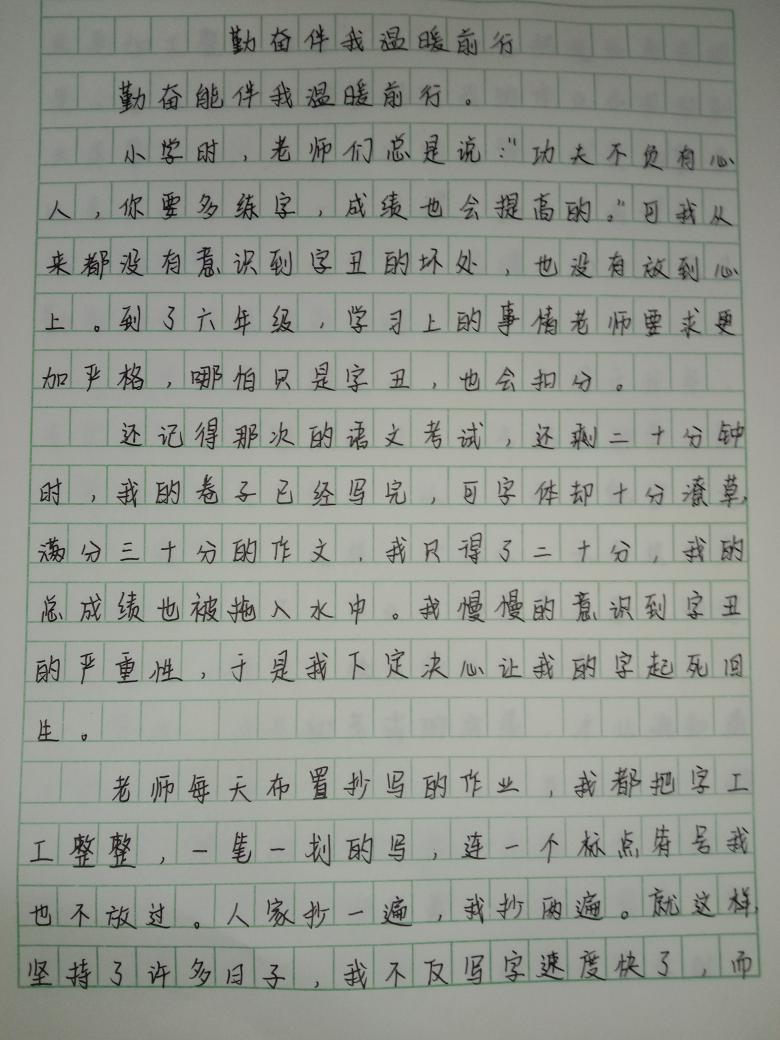 勤奋伴我温暖前行
勤奋能伴我温暖前行。
小学时，老师们总是说：“功夫不负有心
人，你要多练字，成绩也会提高的。”可我从
来都没有意识到字丑的坏处，也没有放到心
上。到了六年级，学习上的事情老师要求更
加严格，哪怕只是字丑，也会扣分。
还记得那次的语文考试，还剩二十分钟
时，我的卷子已经写完，可字体却十分潦草，
满分三十分的作文，我只得了二十分，我的
总成绩也被拖入水中。我慢慢的意识到字丑
的严重性，于是我下定决心让我的字起死回
生。
老师每天布置抄写的作业，我都把字工
工整整，一笔一划的写，连一个标点符号我
也不放过。人家抄一遍，我抄两遍。就这样，
坚持了许多日子，我不反写字速度快了，而